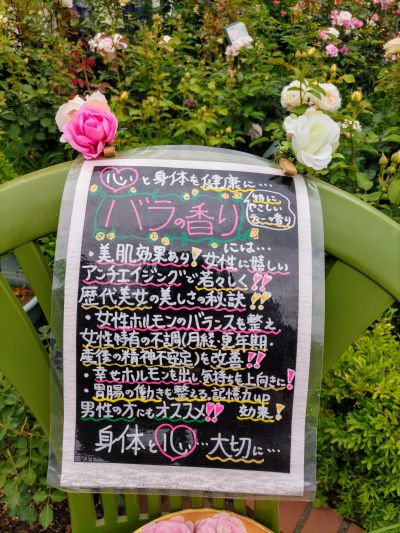 心と身体を健康に…
バラの香り
には…
・美肌効果あり!女性に嬉しい
アンチエイジングで若々しく!!
歴代美女の美しさの秘訣!!
・女性ホルモンのバランスも整え
女性特有の不調(月経・更年期・
産後の精神不安定)を改善!!
・幸せホルモンも出し気持ちも上向きに!
・胃腸の働きも整える、記憶力up
効果!
男性の方にもオススメ!!
身体と心…大切に…